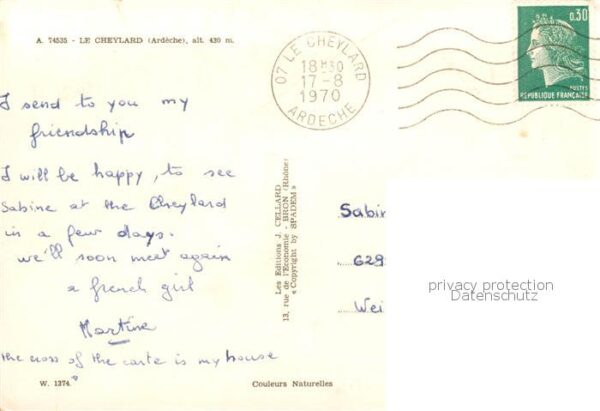 A. 74535 - LE CHEYLARD (Ardèche), alt. 430 m.
07 LE CHEYLARD
18H30
17-8
1970
ARDECHE
0,30
POSTES
REPUBLIQUE FRANÇAISE
I send to you my
friendship
I will be happy, to see
Sabine at the Cheylard
in a few days.
we'll soon meet again
a french girl
Martine
the cross of the carte is my house
Les Editions J. CELLARD
13, rue de l'Economie - BRON (Rhône)
« Copyright by SPADEM »
Sabin
629
Wei
privacy protection
Datenschutz
W. 1274.
Couleurs Naturelles